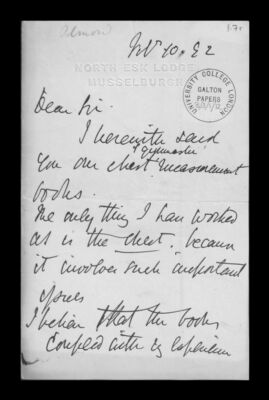 Almond
1.7r
Feb 10. 82
NORTH ESK LODGE,
MUSSELBURGH.
UNIVERSITY COLLEGE LONDON
GALTON
PAPERS
Dear Sir.
I herewith send
you our chest measurement
books.
The only thing I have worked
at is the chest, because
it involves such important
I believe that the books
coupled with my experience